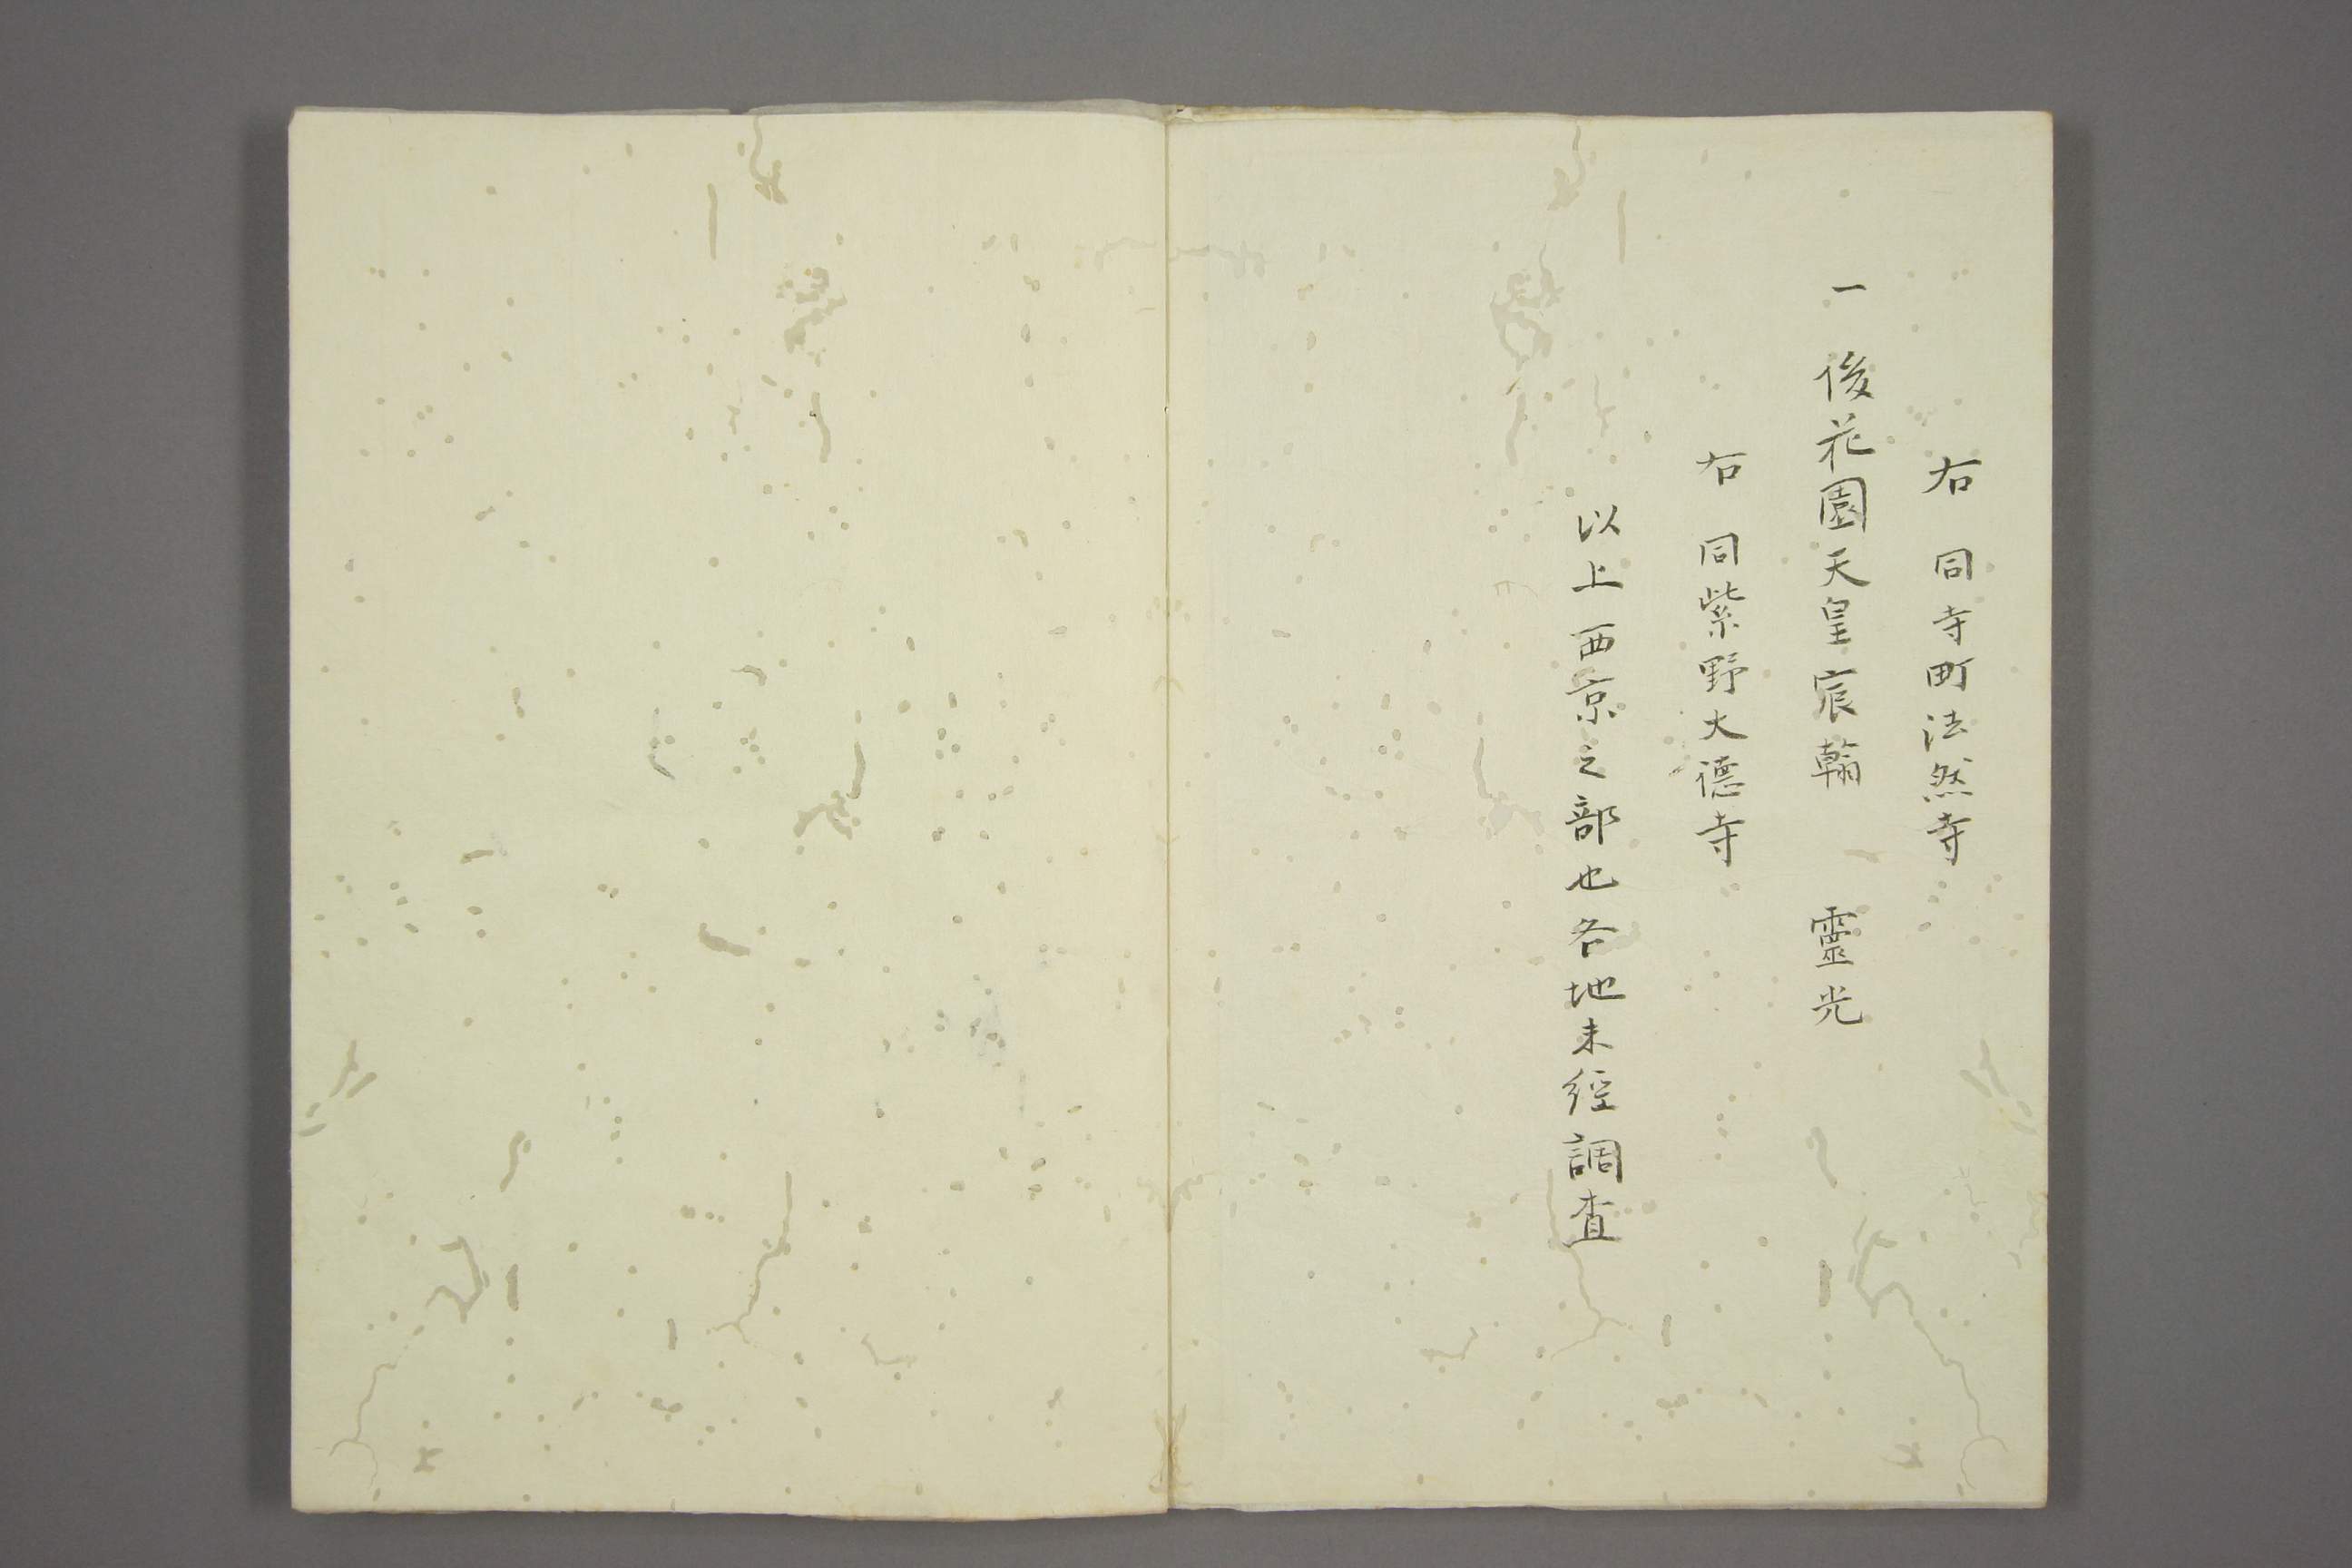 右 同寺町法然寺
一 後花園天皇宸翰 靈光
右 同紫野大德寺
以上西京之部也各地未經調査